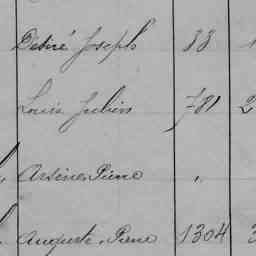 Désiré Joseph 83 1
Louis Julien 781 2
Arsène, Pierre "
Auguste, Pierre 1304 3